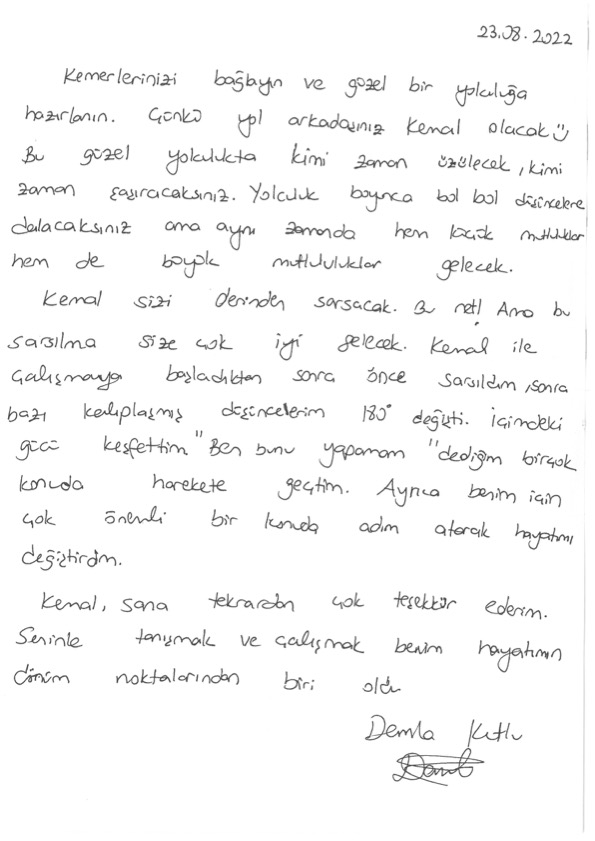 23.08.2022
Kemerlerinizi bağlayın ve güzel bir yolculuğa
hazırlanın. Çünkü yol arkadaşınız Kemal olacak
Bu güzel yolculukta kimi zaman üzülecek, kimi
zaman şaşıracaksınız. Yolculuk boyunca bol bol düşüncelere
dalacaksınız ama aynı zamanda hem küçük mutluluklar
hem de büyük mutluluklar gelecek.
Kemal sizi derinden sarsacak. Bu net! Ama bu
sarsılma size çok iyi gelecek. Kemal ile
çalışmaya başladıktan sonra önce sarsıldım, sonra
bazı kalıplaşmış düşüncelerim 180° değişti. İçimdeki
gücü keşfettim "Ben bunu yapamam" dediğim birçok
konuda harekete geçtim. Ayrıca benim için
çok önemli bir konuda adım atarak hayatımı
değiştirdim.
Kemal, sana tekrardan çok teşekkür ederim.
Seninle tanışmak ve çalışmak benim hayatımın
dönüm noktalarından biri oldu
Demla Kutlu